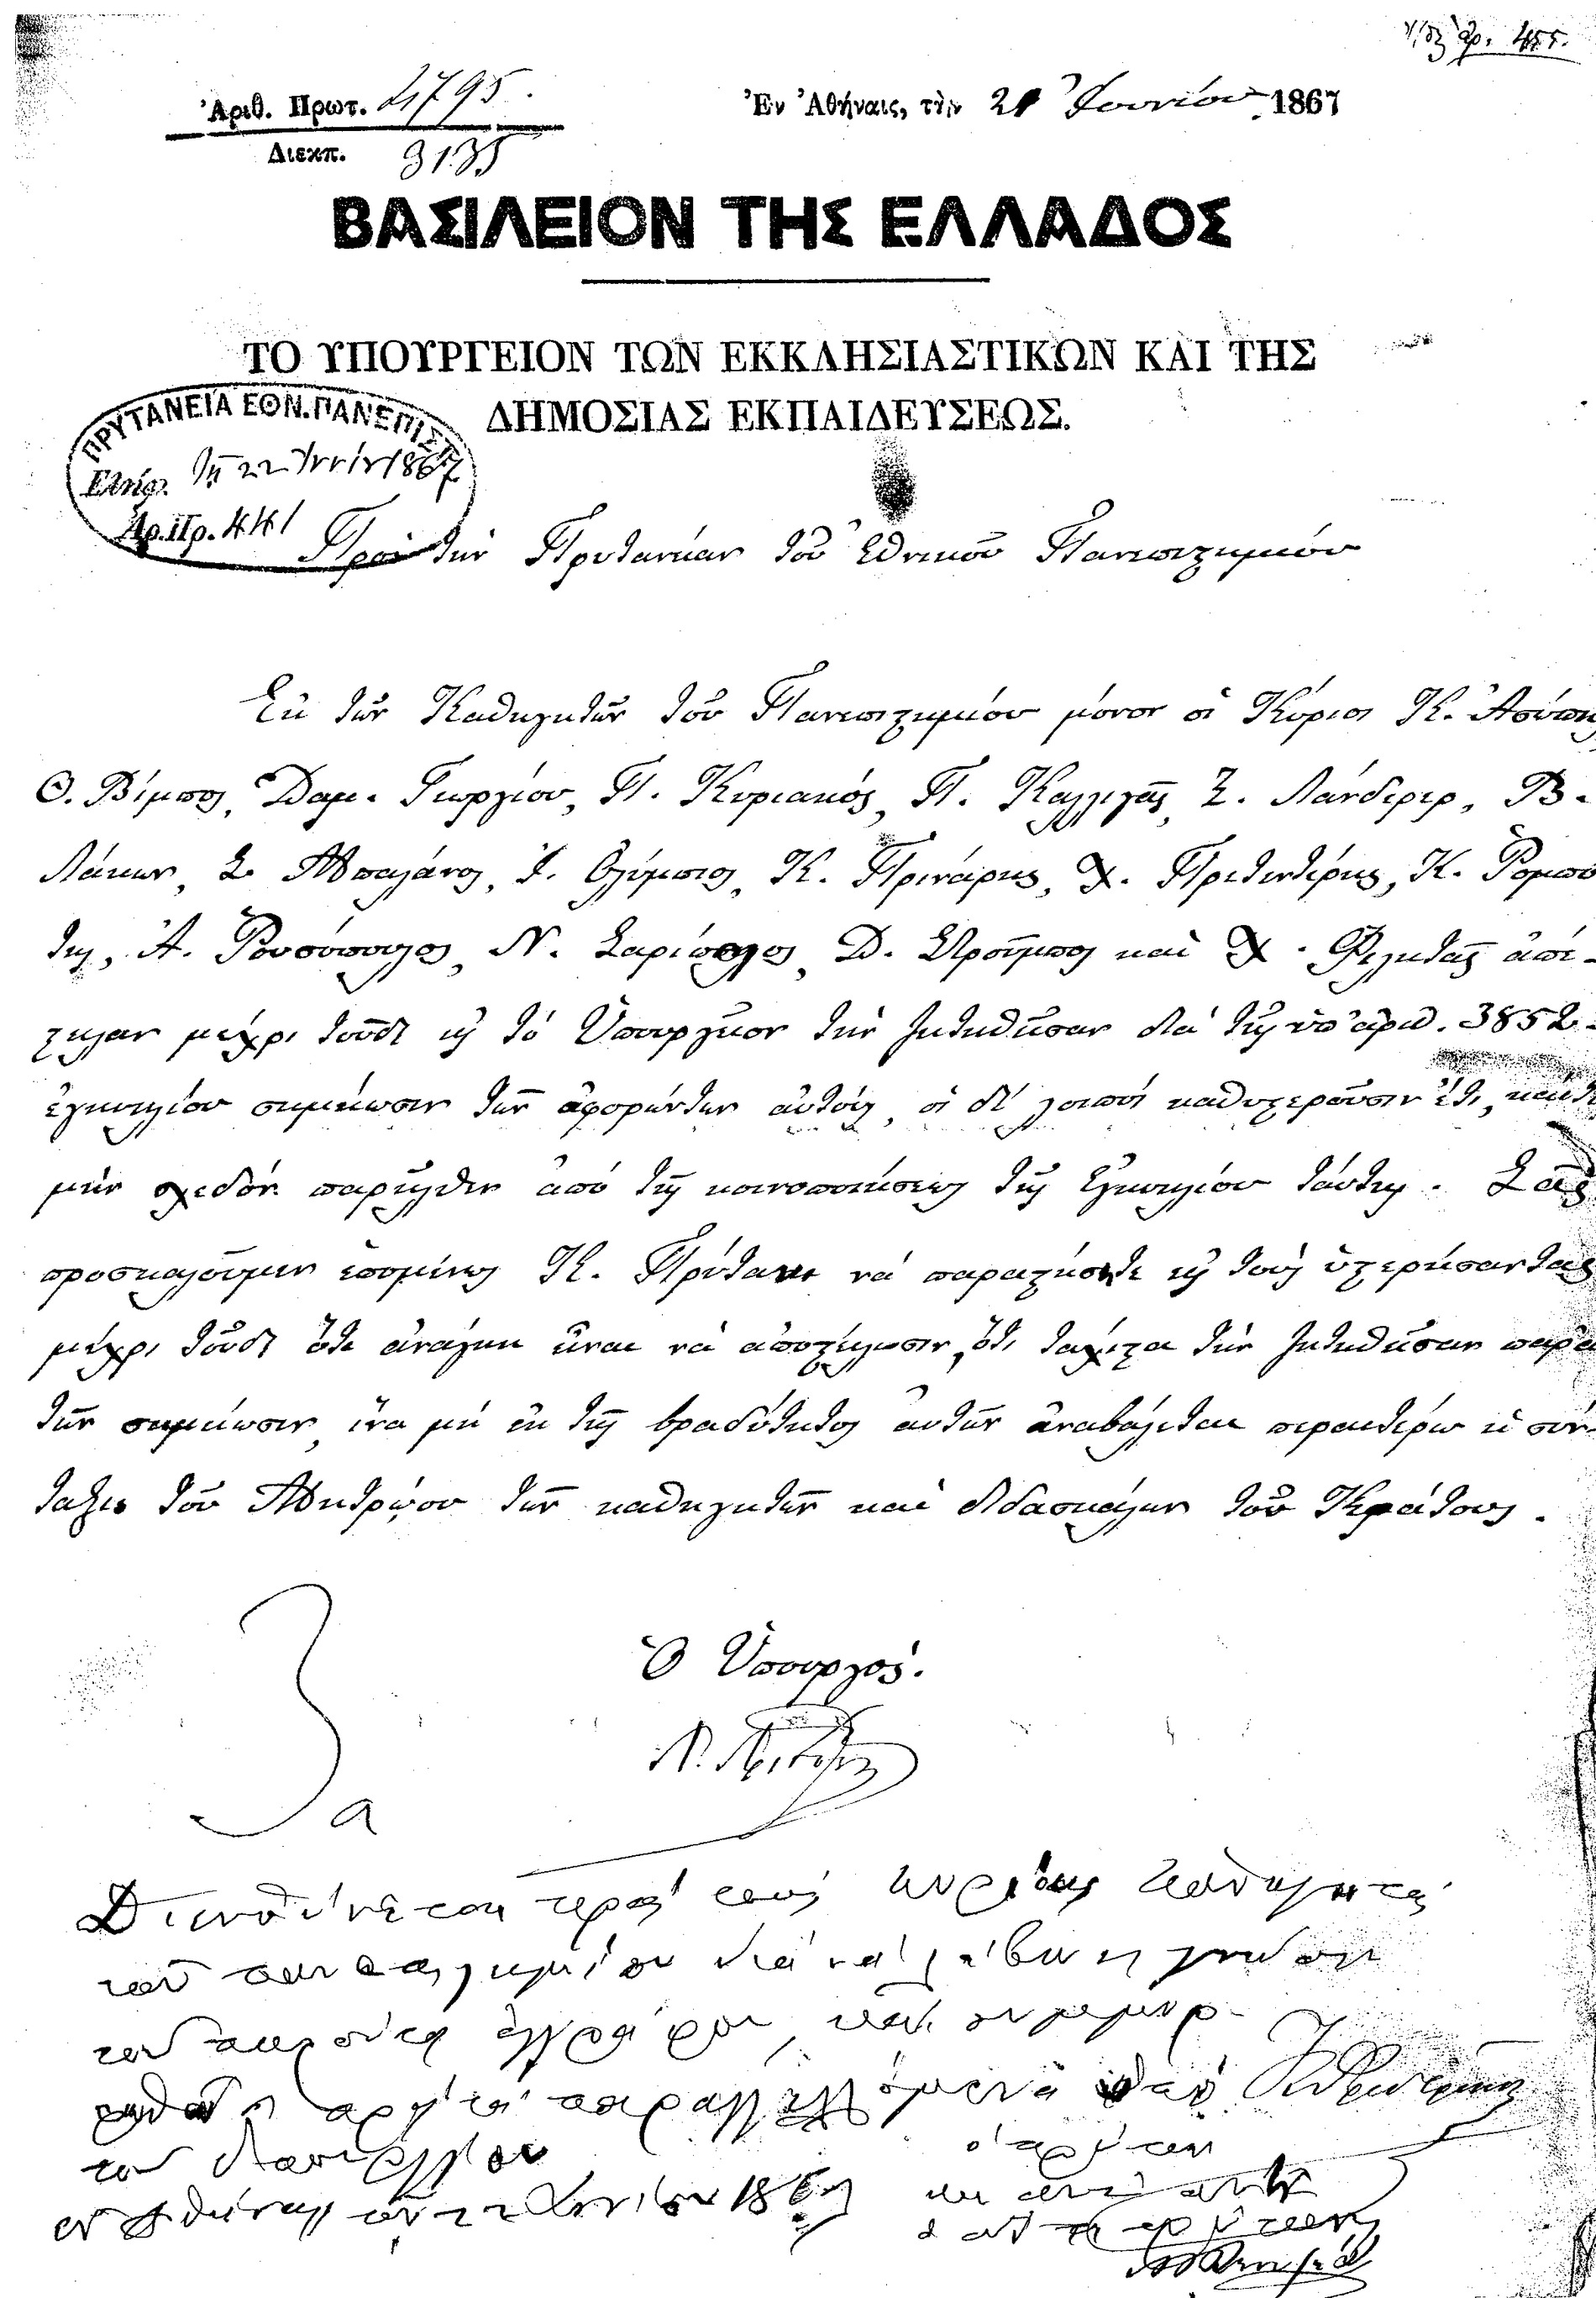 Ἀριθ. Πρωτ. 4795.
Διεκπ. 3135
Ἐν Ἀθήναις, τὴν 21 Ἰουνίου 1867
ΒΑΣΙΛΕΙΟΝ ΤΗΣ ΕΛΛΑΔΟΣ
ΤΟ ΥΠΟΥΡΓΕΙΟΝ ΤΩΝ ΕΚΚΛΗΣΙΑΣΤΙΚΩΝ ΚΑΙ ΤΗΣ
ΔΗΜΟΣΙΑΣ ΕΚΠΑΙΔΕΥΣΕΩΣ.
ΠΡΥΤΑΝΕΙΑ ΕΘΝ. ΠΑΝΕΠΙΣΤ
Ἐλήφ. τῇ 22 Ἰουνίου 1867
Ἀρ. Πρ. 441
Πρὸς τὴν Πρυτανείαν τοῦ Ἐθνικοῦ Πανεπιστημίου
Ἐκ τῶν Καθηγητῶν τοῦ Πανεπιστημίου μόνοι οἱ Κύριοι Κ. Ἀσώπιος
Θ. Βίμπος, Δαμ. Γεωργίου, Π. Κυριακός, Π. Καλλιγᾶς, Ξ. Λάνδερερ, Β.
Λάκων, Σ. Μπαλάνος, Ι. Ὀλύμπιος, Κ. Πρινάρης, Χ. Πρετεντέρης, Κ. Ῥομπό
της, Ἀ. Ῥουσόπουλος, Ν. Σαρίπολος, Δ. Στροῦμπος καὶ Χ. Φιλητᾶς ἀπέ-
στειλαν μέχρι τοῦδε εἰς τὸ Ὑπουργεῖον τὴν ζητηθεῖσαν διὰ τῆς ὑπ' ἀριθ. 3852
ἐγκυκλίου σημείωσιν τῶν ἀφορώντων αὐτούς, οἱ δὲ λοιποὶ καθυστεροῦσιν ἔτι, καίτοι
μὴν σχεδὸν παρῆλθεν ἀπὸ τῆς κοινοποιήσεως τῆς ἐγκυκλίου ταύτης. Σᾶς
προσκαλοῦμεν ἑπομένως Κ. Πρύτανι νὰ παραστήσητε εἰς τοὺς ὑστερήσαντας
μέχρι τοῦδε ὅτι ἀνάγκη εἶναι νὰ ἀποστείλωσιν ὅτι τάχιστα τὴν ζητηθεῖσαν παρ'
τῶν σημείωσιν, ἵνα μὴ ἐκ τῆς βραδύτητος αὐτῶν ἀναβάλληται περαιτέρω ἡ σύν-
ταξις τοῦ Μητρῴου τῶν καθηγητῶν καὶ διδασκάλων τοῦ Κράτους.
Ὁ Ὑπουργός.
πρὸς τοὺς Κυρίους Καθηγητὰς
τοῦ πανεπιστημίου διὰ νὰ λάβωσι γνῶσιν
τοῦ παρόντος ἐγγράφου καὶ συμμορ-
φωθῶσι
τοῦ ὑπουργείου
ἐν Ἀθήναις τῇ 22 Ἰουνίου 1867
ὁ πρύτανις